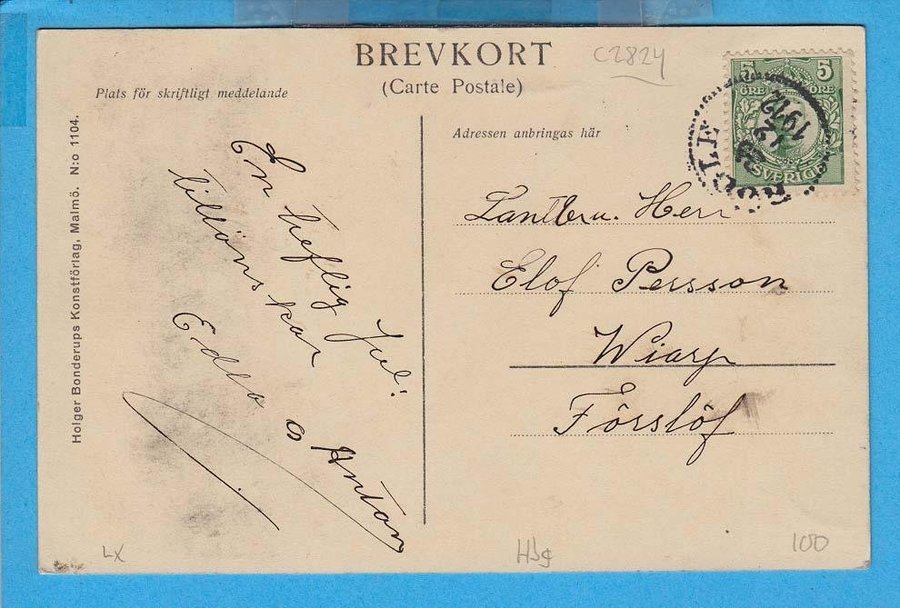 BREVKORT
(Carte Postale)
C2824
Plats för skriftligt meddelande
Adressen anbringas här
Holger Bonderups Konstförlag, Malmö. N:o 1104.
En treflig Jul
tillönskar
Edla o Anton
Lantbru. Herr
Elof Persson
Wiarp
Förslöf
5 5
ÖRE ÖRE
SVERIGE
1912
LX
Hbg
100